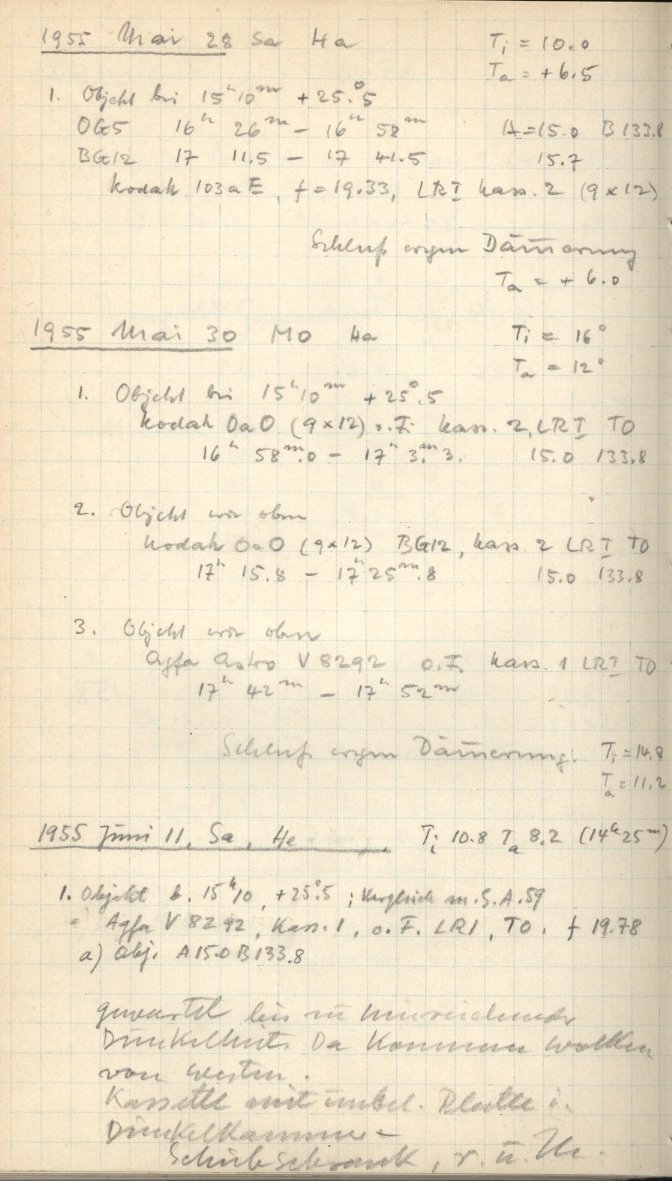 1955 Mai 28 Sa Ha Ti = 10.0
Ta = +6.5
1. Objekt bei 15h10m +25.°5
OG5 16h 26m – 16h 58m A=15.0 B 133.8
BG12 17 11.5 – 17 41.5 15.7
Kodak 103aE, f = 19.33, LRI Kass. 2 (9 x 12)
Schluß wegen Dämmerung
Ta = + 6.0
1955 Mai 30 Mo Ha Ti = 16°
Ta = 12°
1. Objekt bei 15h10m +25°.5
Kodak OaO (9x12) o.F. Kass. 2, LRI TO
16h 58m.0 – 17h 3m.3. 15.0 133.8
2. Objekt wie oben
Kodak OaO (9x12) BG12, Kass 2 LRI TO
17h 15.8 – 17h25m.8 15.0 133.8
3. Objekt wie oben
Agfa Astro V 8292 o.F. Kass. 1 LRI TO
17h 42m – 17h 52m
Schluß wegen Dämmerung. Ti = 14.8
Ta = 11.2
1955 Juni 11, Sa, He Ti 10.8 Ta 8.2 (14h25m)
1. Objekt b. 15h10, +25°.5 ; Vergleich m. S.A. 59
Agfa V 8292, Kass. 1, o.F. LRI, TO. f 19.78
a) Obj. A 15.0 B 133.8
gewartet bis zu hinreichender
Dunkelheit. Da kommen Wolken
von Westen.
Kassette mit unbel. Platte i.
Dunkelkammer-
Schiebeschrank, r. u.